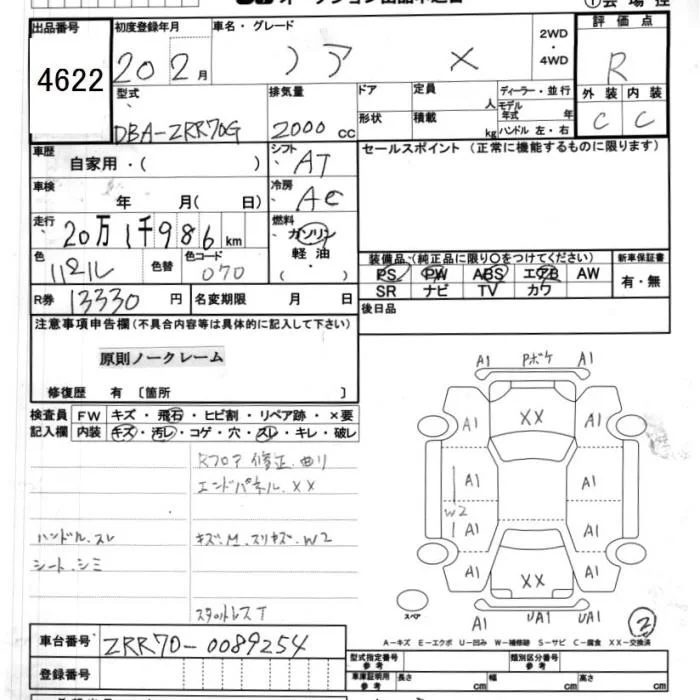 出品番号 初度登録年月 車名・グレード 2WD・4WD 評価点
4622 20 2月 ノア X R
型式 排気量 ドア 定員 人 ディーラー・並行 外装 内装
DBA-ZRR70G 2000cc 形状 積載 kg モデル年式 年 ハンドル 左・右 C C
車歴 自家用・( ) シフト AT セールスポイント(正常に機能するものに限ります)
車検 年 月( 日) 冷房 AC
走行 20万1千986km 燃料 ガソリン
軽油
・( )
色 色替 色コード 070
装備品(純正品に限り○をつけてください) 新車保証書
PS PW ABS エアB AW 有・無
SR ナビ TV カワ
R券 13330円 名変期限 月 日 後日品
注意事項申告欄(不具合内容等は具体的に記入して下さい)
原則ノークレーム
修復歴 有 〔箇所 〕
検査員 FW キズ・飛石・ヒビ割・リペア跡・×要
記入欄 内装 キズ・汚レ・コゲ・穴・スレ・キレ・破レ
Rフロア修正.曲リ
エンドパネル.XX
ハンドル.スレ キズ.M.スリキズ.W2
シート.シミ
スタットレスT
A1 Pボケ A1
A1 XX A1
A1 A1
W2 A1 A1
A1 XX A1
スペア A1 UA1 UA1 2
A-キズ E-エクボ U-凹み W-補修跡 S-サビ C-腐食 XX-交換済
車台番号 ZRR70-0089254
型式指定番号 参考 類別区分番号 参考
登録番号 車庫証明用 参考 長さ cm 幅 cm 高さ cm